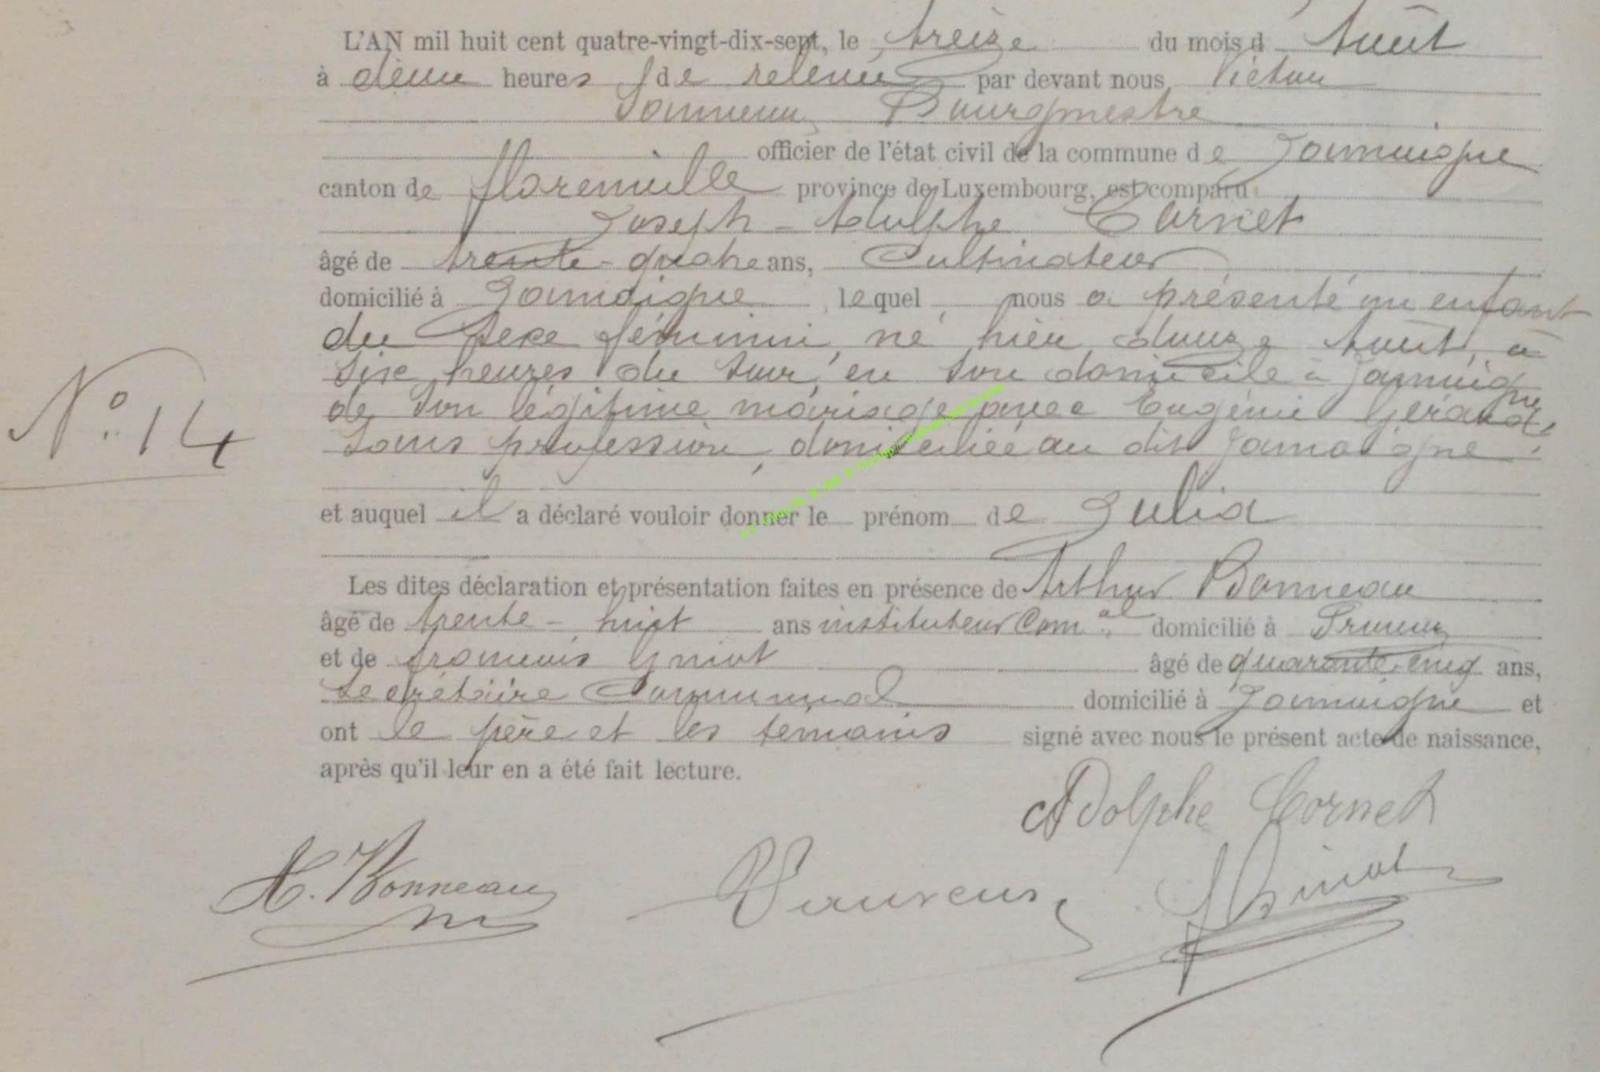 L'AN mil huit cent quatre-vingt-dix-sept, le treize du mois d Août
à deux heures de relevée par devant nous Victor
Bourgmestre
officier de l'état civil de la commune de Jamoigne
canton de florenville province de Luxembourg, est comparu
Joseph-Adolphe Cornet
âgé de trente-quatre ans, Cultivateur
domicilié à Jamoigne, lequel nous a présenté un enfant
du sexe féminin, né hier douze Août, à
six heures du soir, en son domicile à Jamoigne
de son légitime mariage avec Eugénie Gérard,
sans profession, domiciliée au dit Jamoigne.
N° 14
et auquel il a déclaré vouloir donner le prénom de Julia
Les dites déclaration et présentation faites en présence de Arthur Bonneau
âgé de trente-huit ans instituteur Com.al domicilié à
et de françois âgé de quarante-cinq ans,
secrétaire Communal domicilié à Jamoigne et
ont le père et les témoins signé avec nous le présent acte de naissance,
après qu'il leur en a été fait lecture.
Adolphe Cornet
A. Bonneau